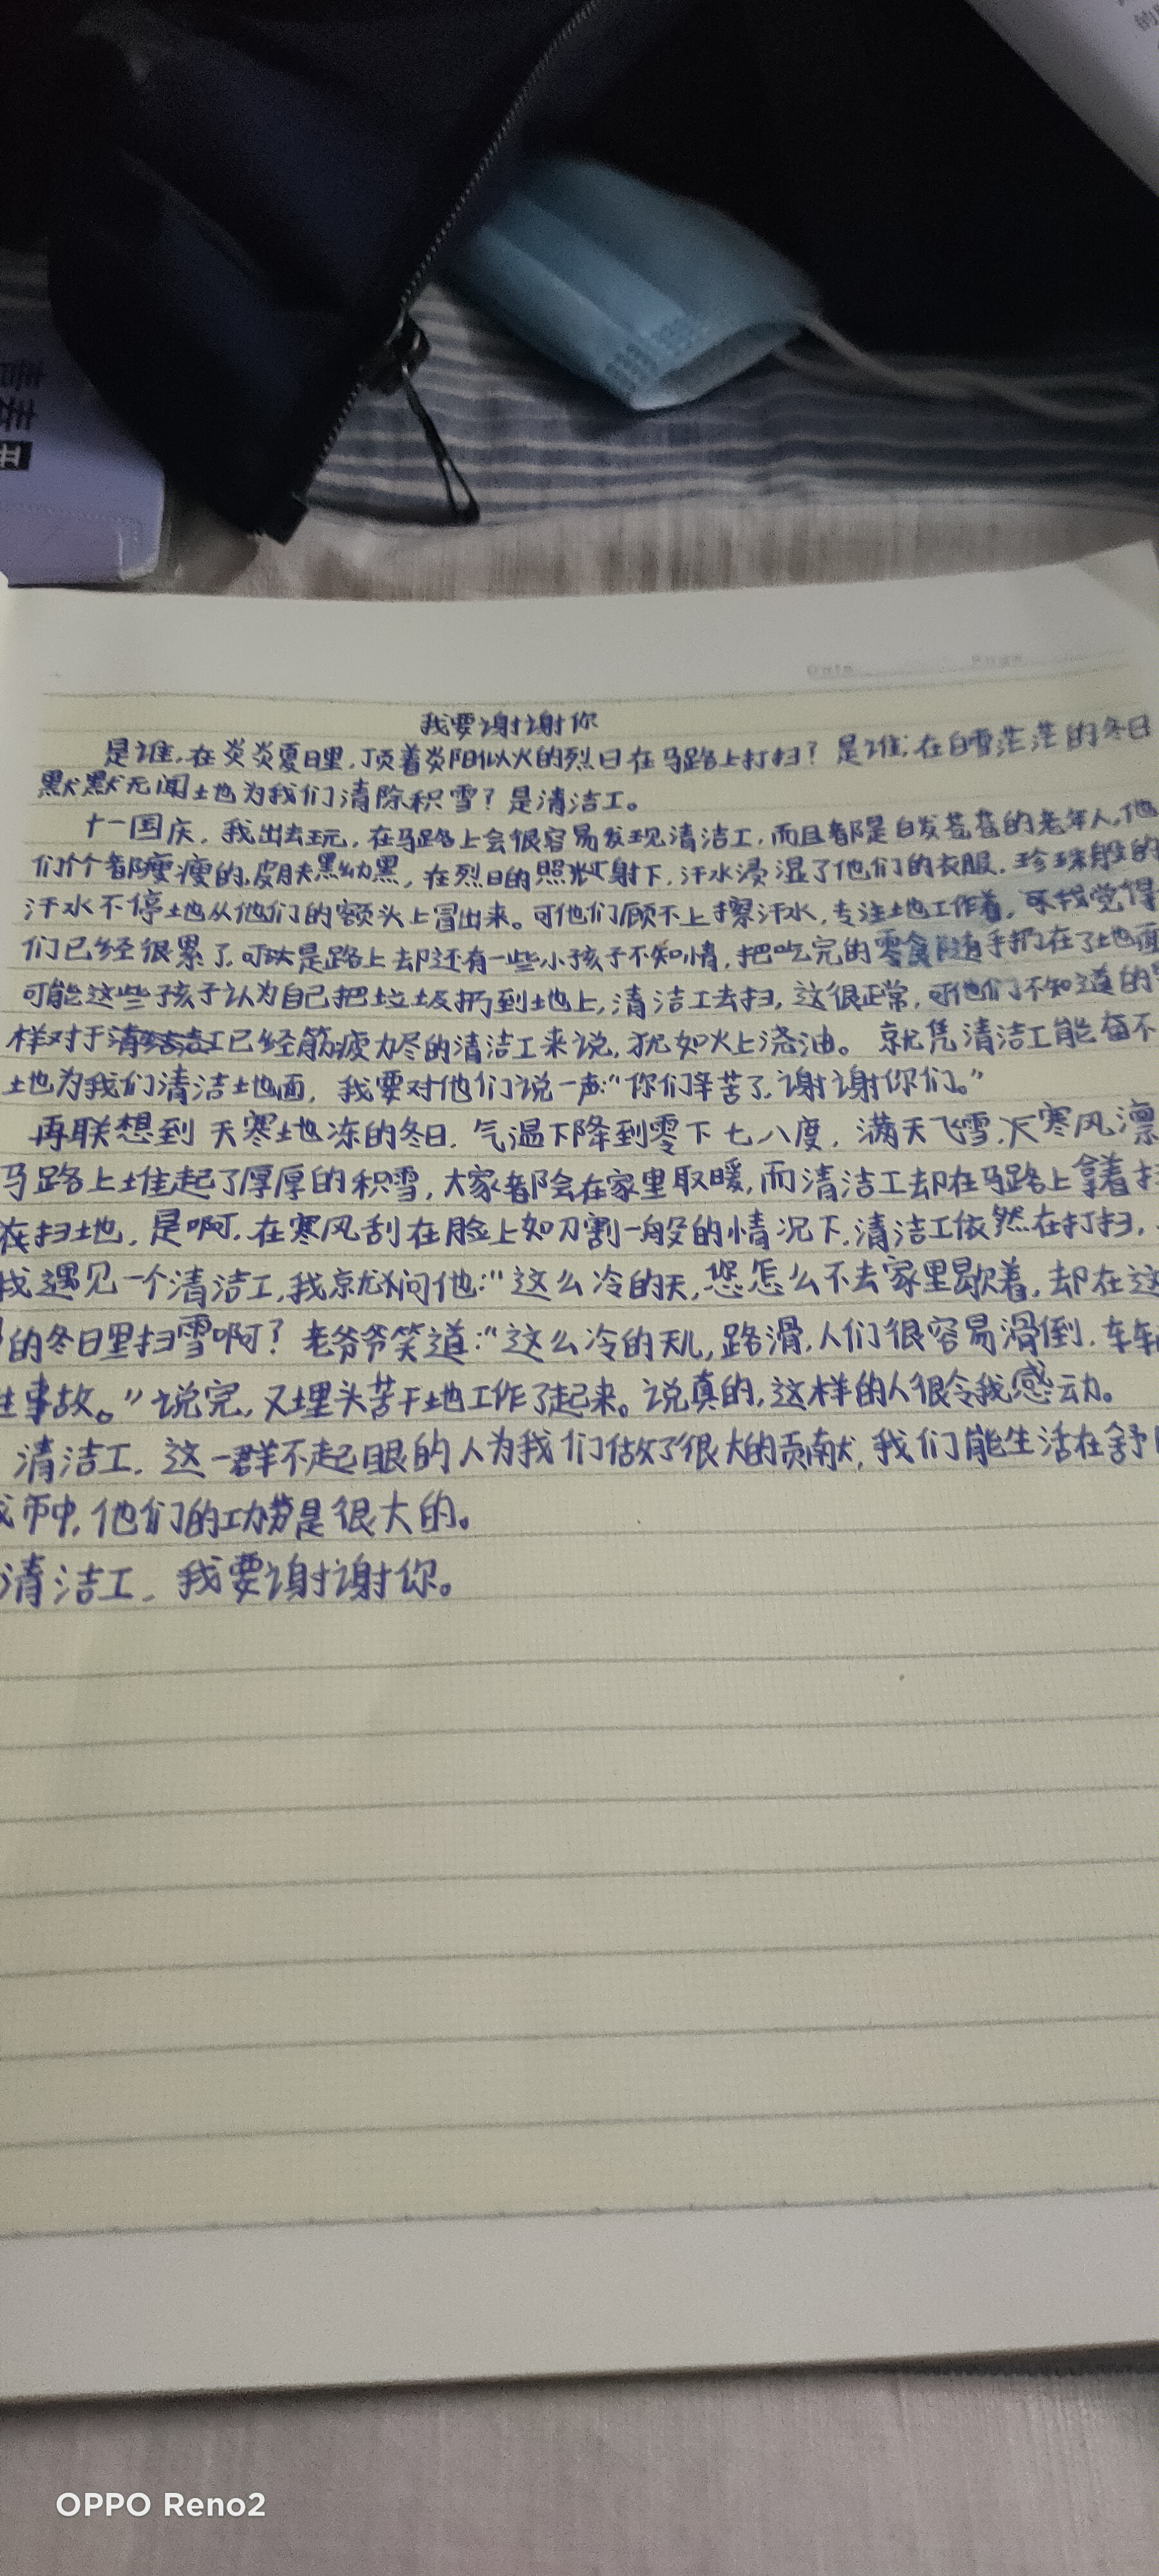 我要谢谢你
是谁,在炎炎夏日里,顶着炎阳似火的烈日在马路上打扫?是谁,在白雪茫茫的冬日
默默无闻地为我们清除积雪?是清洁工。
十一国庆,我出去玩,在马路上会很容易发现清洁工,而且都是白发苍苍的老年人,他
们个个都瘦瘦的,皮肤黑幼黑,在烈日的照射下,汗水浸湿了他们的衣服.珍珠般的
汗水不停地从他们的额头上冒出来。可他们顾不上擦汗水,专注地工作着,我觉得
们已经很累了,可是路上却还有一些小孩子不知情,把吃完的零食随手扔在了地面
可能这些孩子认为自己把垃圾扔到地上,清洁工去扫,这很正常,可他们不知道的
样对于清洁工已经筋疲力尽的清洁工来说,犹如火上浇油。就凭清洁工能奋不
地为我们清洁地面,我要对他们说一声:“你们辛苦了,谢谢你们。”
再联想到天寒地冻的冬日,气温下降到零下七八度,满天飞雪,寒风凛
马路上堆起了厚厚的积雪,大家都会在家里取暖,而清洁工却在马路上拿着扫
在扫地,是啊,在寒风刮在脸上如刀割一般的情况下,清洁工依然在打扫,
我遇见一个清洁工,我就问他:“这么冷的天,您怎么不去家里歇着,却在这
的冬日里扫雪啊?老爷爷笑道:“这么冷的天儿,路滑,人们很容易滑倒,车辆
生事故。”说完,又埋头苦干地工作了起来。说真的,这样的人很令我感动。
清洁工,这一群不起眼的人为我们做了很大的贡献,我们能生活在舒
城市中,他们的功劳是很大的。
清洁工,我要谢谢你。
OPPO Reno2